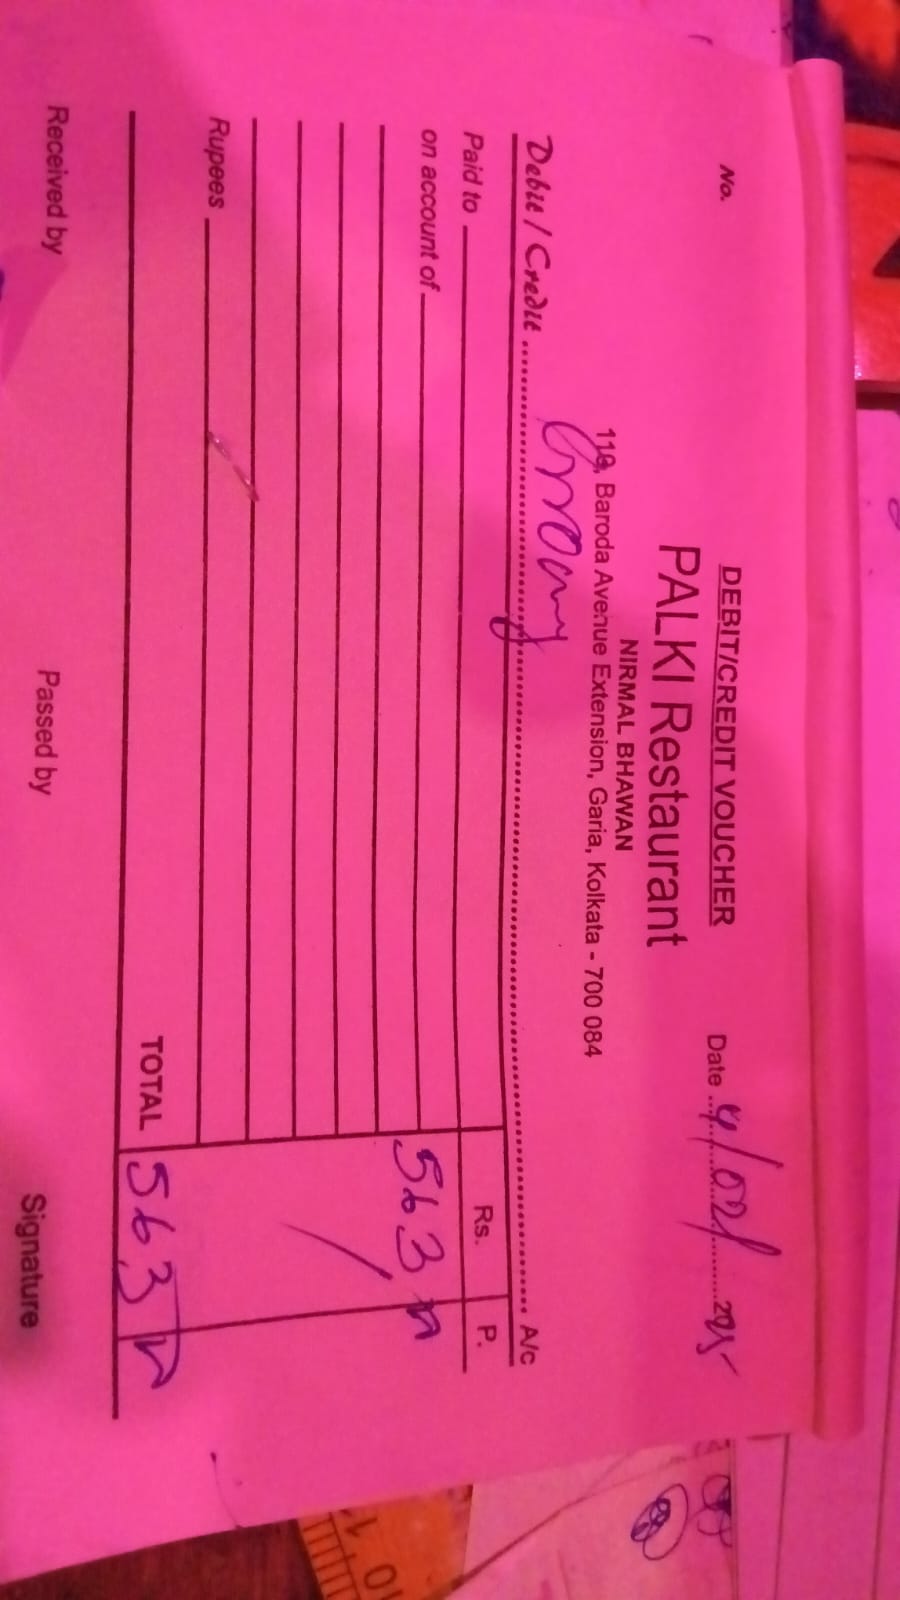 DEBIT/CREDIT VOUCHER
No.
Date 4/02/2025
PALKI Restaurant
NIRMAL BHAWAN
119, Baroda Avenue Extension, Garia, Kolkata - 700 084
Debit / Credit A/c
Paid to Rs. P.
on account of 563
Rupees
TOTAL 563
Received by Passed by Signature
10